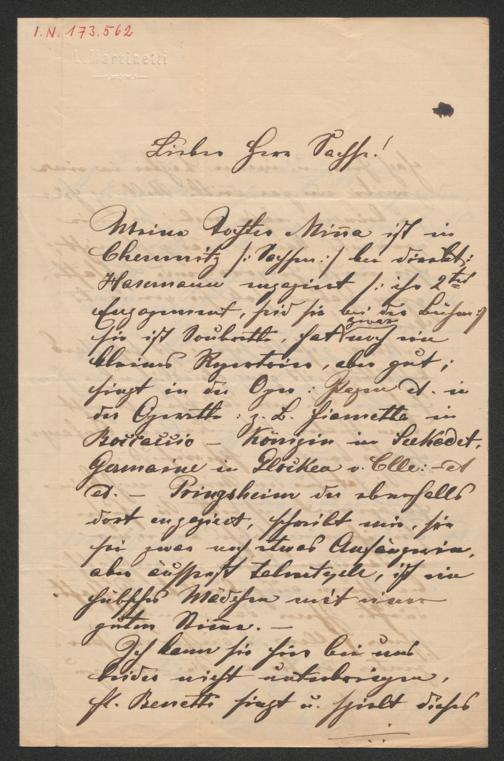 I.N. 173.562
Martinelli
Lieber Herr Sachse!
Meine Tochter Minna ist in
Chemnitz /: Sachsen :/ bei Direkt:
Hasemann engagirt /: ihr 2tes
Engagement, seid sie bei der Bühne :/
sie ist Soubrette, hat zwar noch ein
kleines Repertoire, aber gut;
singt in der Oper: Pagen ct. in
der Operette: z. B. Fiametta in
Boccaccio – Königin im Seekadet,
Germaine in Glocken v. – ct
ct. – Pringsheim der ebenfalls
dort engagirt, schreibt mir, sie
sei zwar noch etwas Anfängerin,
aber äusserst talentvoll, ist ein
hübsches Mädchen mit einer
guten Stimme. –
Ich kann sie hier bei uns
leider nicht unterbringen,
singt u. spielt dieses